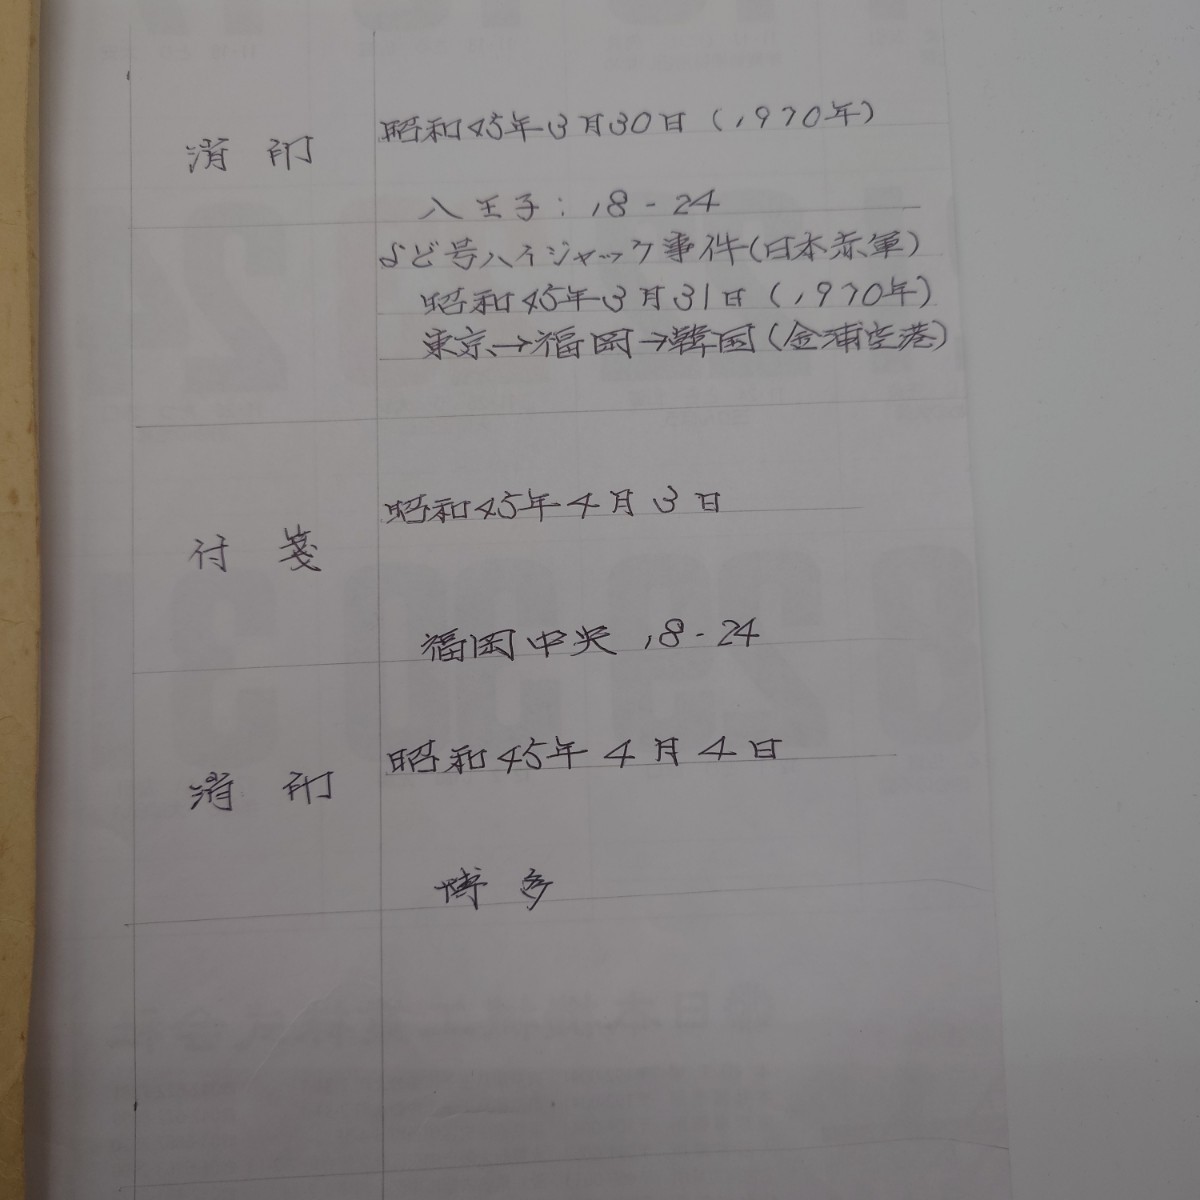 消印
昭和45年3月30日(1970年)
八王子:18-24
よど号ハイジャック事件(日本赤軍)
昭和45年3月31日(1970年)
東京→福岡→韓国(金浦空港)
付箋
昭和45年4月3日
福岡中央 18-24
消印
昭和45年4月4日
博多